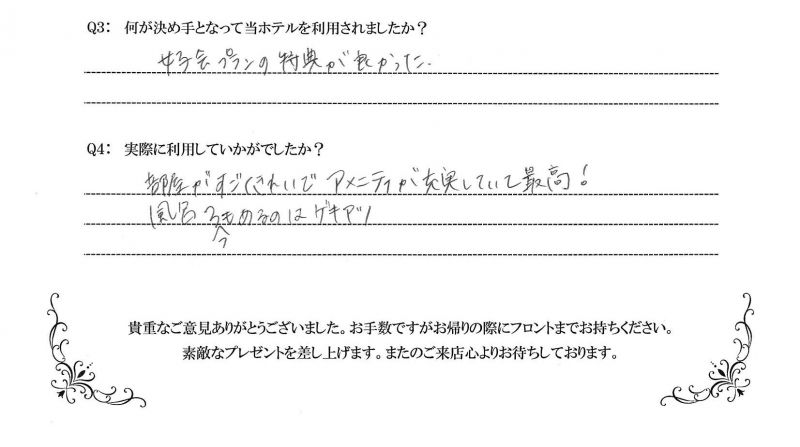 Q3: 何が決め手となって当ホテルを利用されましたか？
女子会プランの特典が良かった.
Q4: 実際に利用していかがでしたか？
部屋がすごくきれいで アメニティが充実していて最高！
風呂 のは ゲキアツ
貴重なご意見ありがとうございました。お手数ですがお帰りの際にフロントまでお持ちください。
素敵なプレゼントを差し上げます。またのご来店心よりお待ちしております。